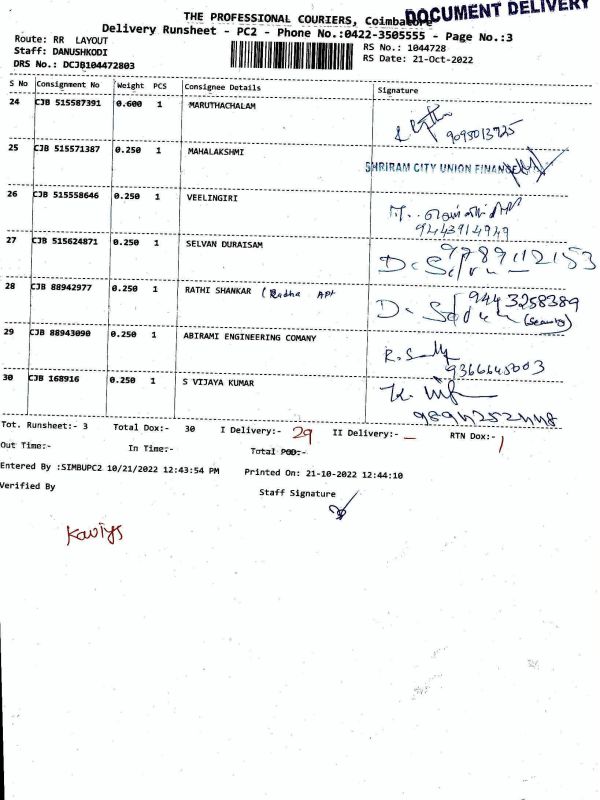 DOCUMENT DELIVERY
THE PROFESSIONAL COURIERS, Coimbatore
Delivery Runsheet - PC2 - Phone No.:0422-3505555 - Page No.:3
Route: RR LAYOUT RS No.: 1044728
Staff: DANUSHKODI RS Date: 21-Oct-2022
DRS No.: DCJB104472803
S No Consignment No Weight PCS Consignee Details Signature
24 CJB 515587391 0.600 1 MARUTHACHALAM
9095013725
25 CJB 515571387 0.250 1 MAHALAKSHMI
SHRIRAM CITY UNION FINANCE
26 CJB 515558646 0.250 1 VEELINGIRI
9443914949
27 CJB 515624871 0.250 1 SELVAN DURAISAM
9789112153
28 CJB 88942977 0.250 1 RATHI SHANKAR (Radha Apt
9443258389
(Security)
29 CJB 88943090 0.250 1 ABIRAMI ENGINEERING COMANY
9366645003
30 CJB 168916 0.250 1 S VIJAYA KUMAR
Tot. Runsheet:- 3 Total Dox:- 30 I Delivery:- 29 II Delivery:- – RTN Dox:- 1
Out Time:- In Time:- Total POD:-
Entered By :SIMBUPC2 10/21/2022 12:43:54 PM Printed On: 21-10-2022 12:44:10
Verified By Staff Signature